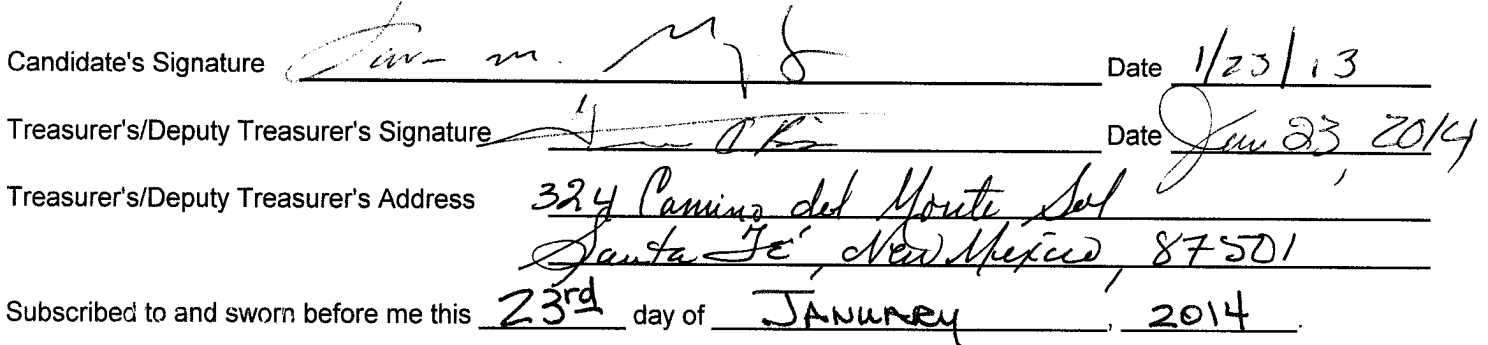 Candidate's Signature m. Date 1/23/13
Treasurer's/Deputy Treasurer's Signature Date Jan 23, 2014
Treasurer's/Deputy Treasurer's Address 324 Camino del Monte Sol
Santa Fé, New Mexico, 87501
Subscribed to and sworn before me this 23rd day of JANUARY, 2014.